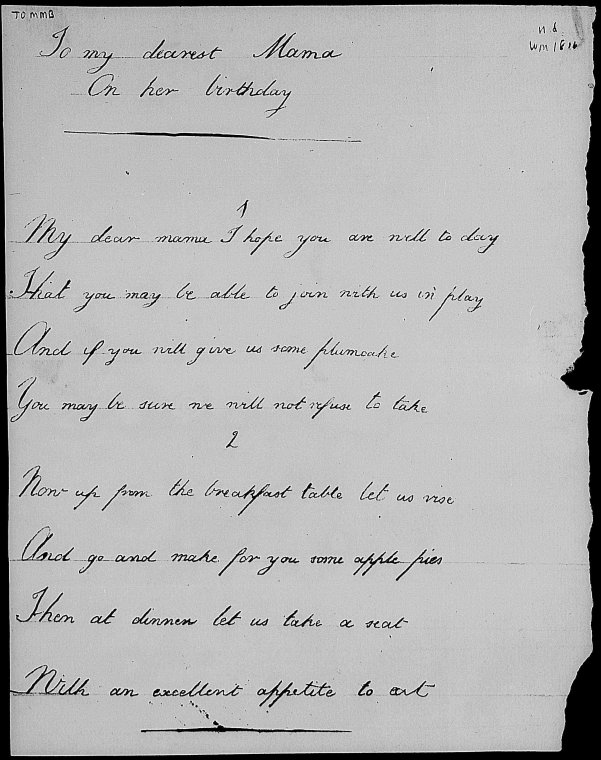 TO MMB
n.d.
Wm 1816
To my dearest Mama
On her birthday
1
My dear mama I hope you are well to day
That you may be able to join with us in play
And if you will give us some plumcake
You may be sure we will not refuse to take
2
Now up from the breakfast table let us rise
And go and make for you some apple pies
Then at dinner let us take a seat
With an excellent appetite to eat